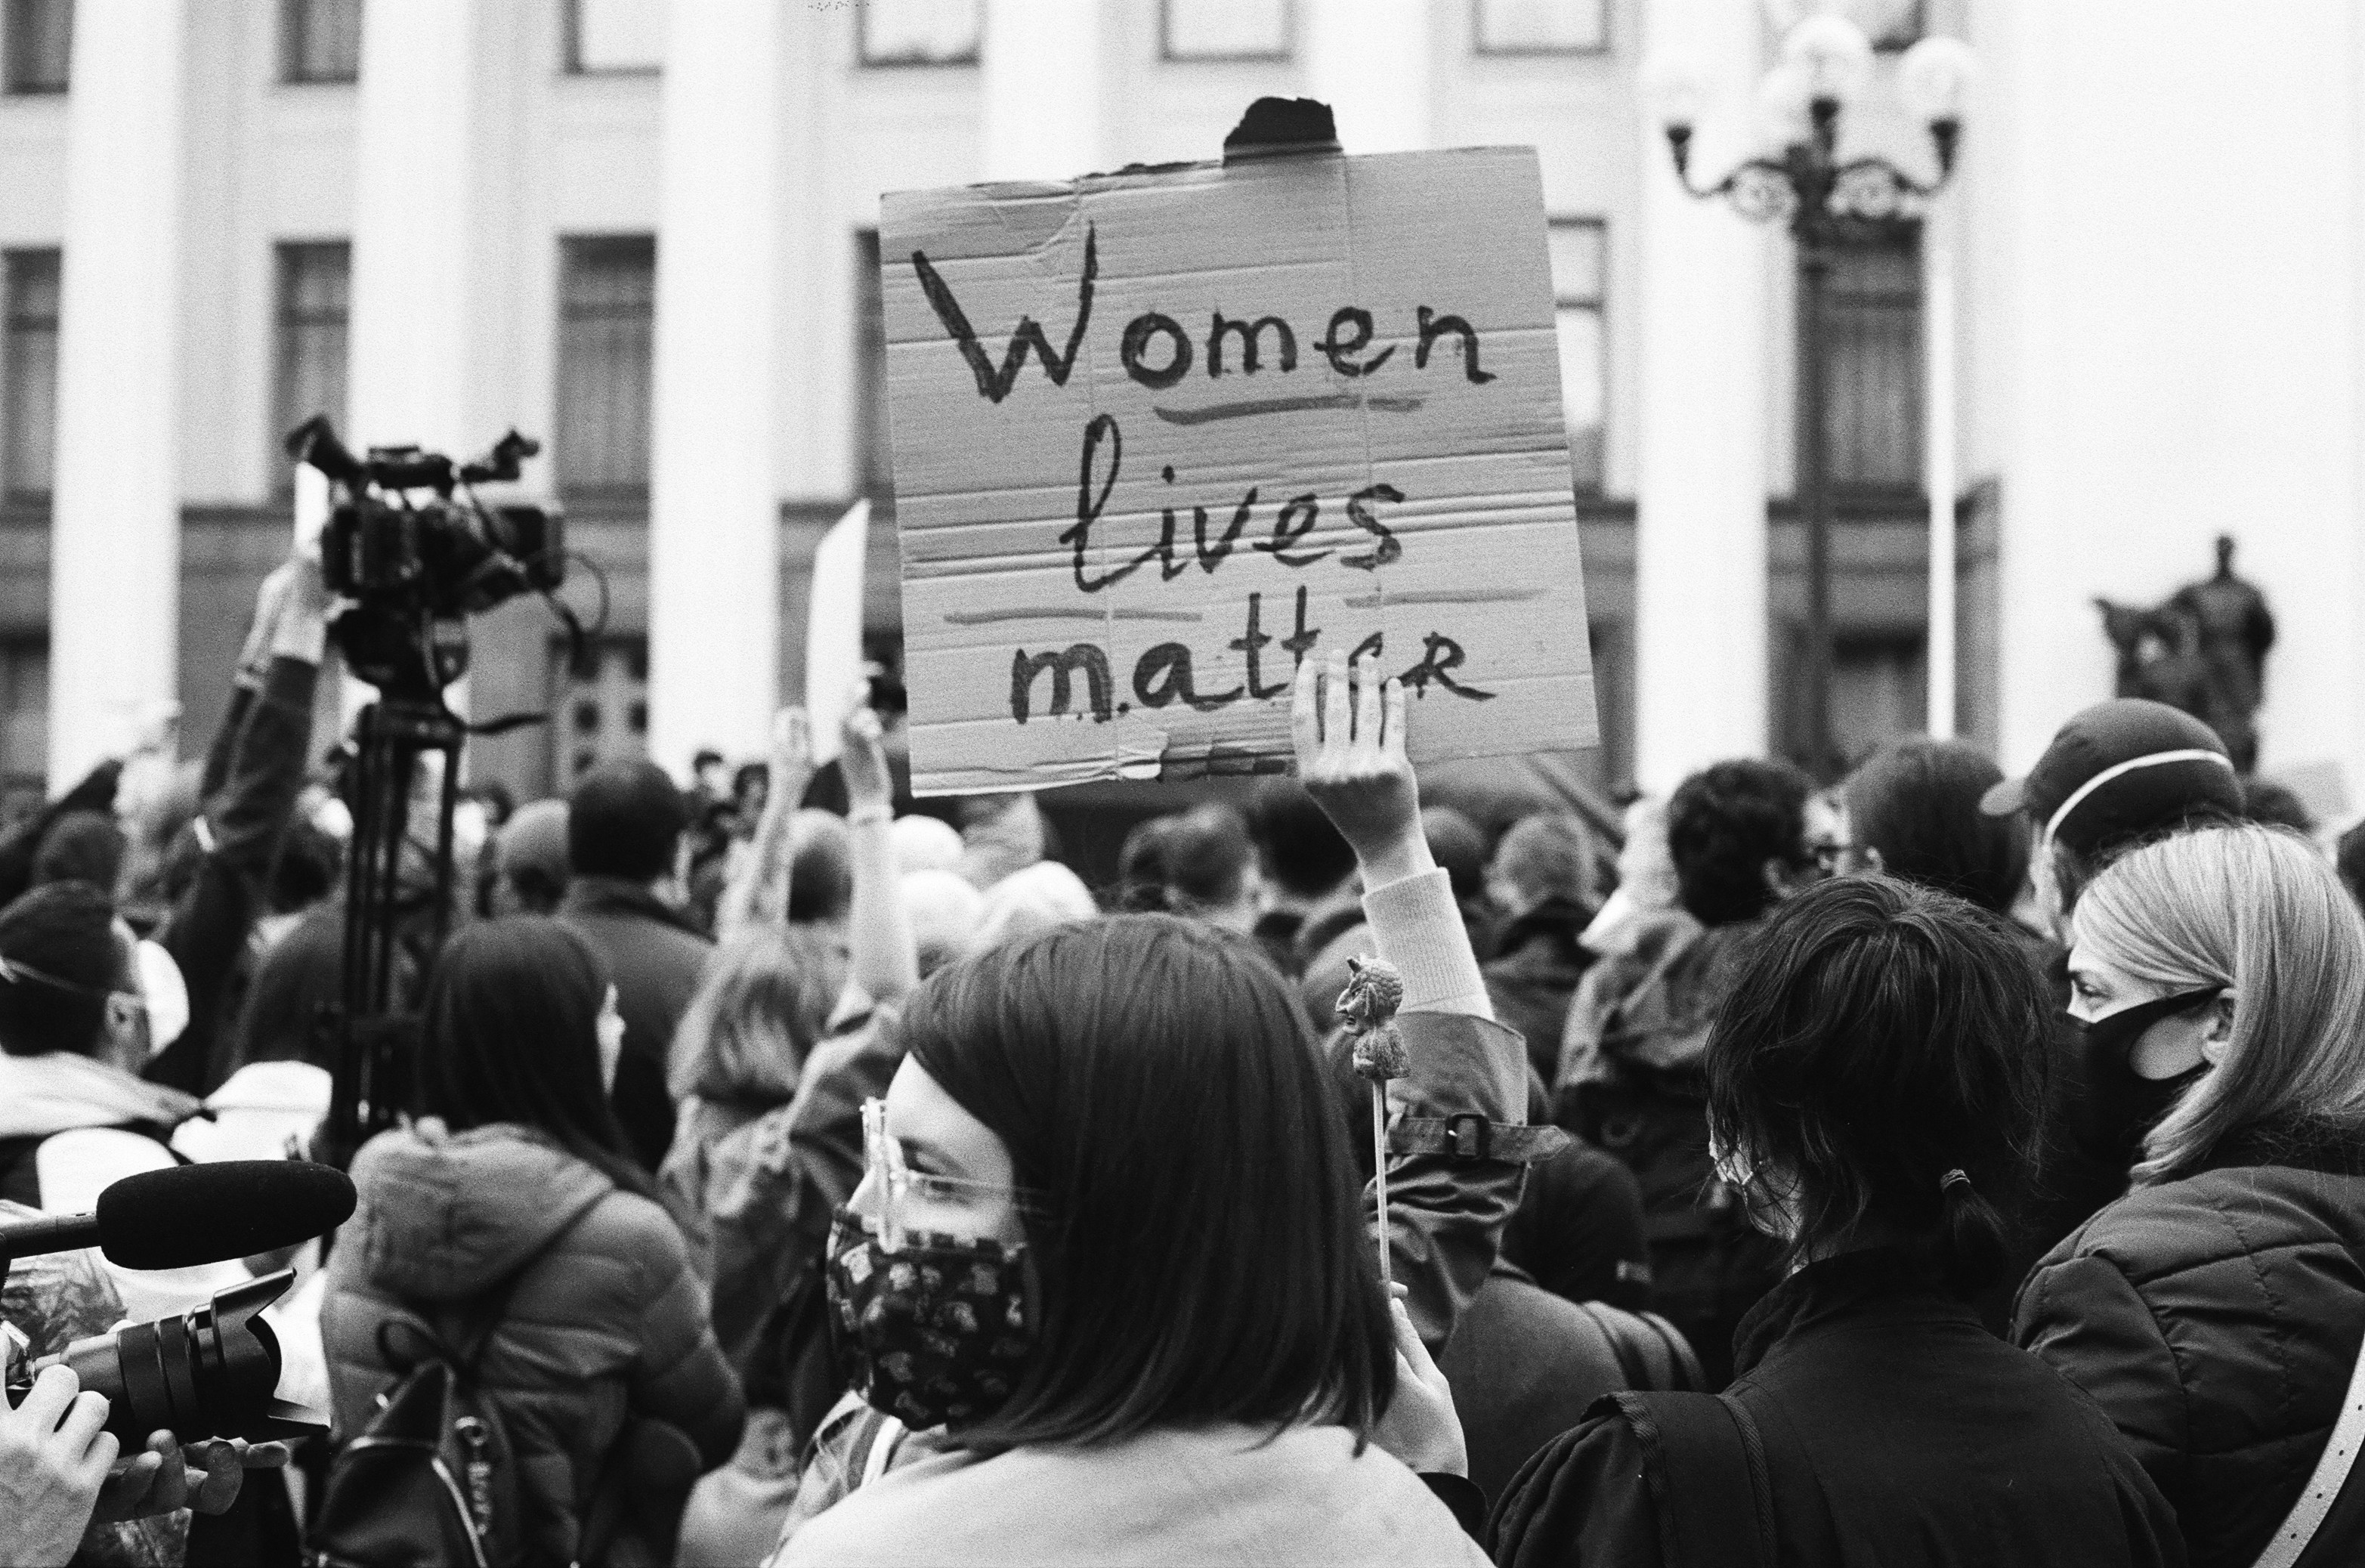 Women
lives
matteR